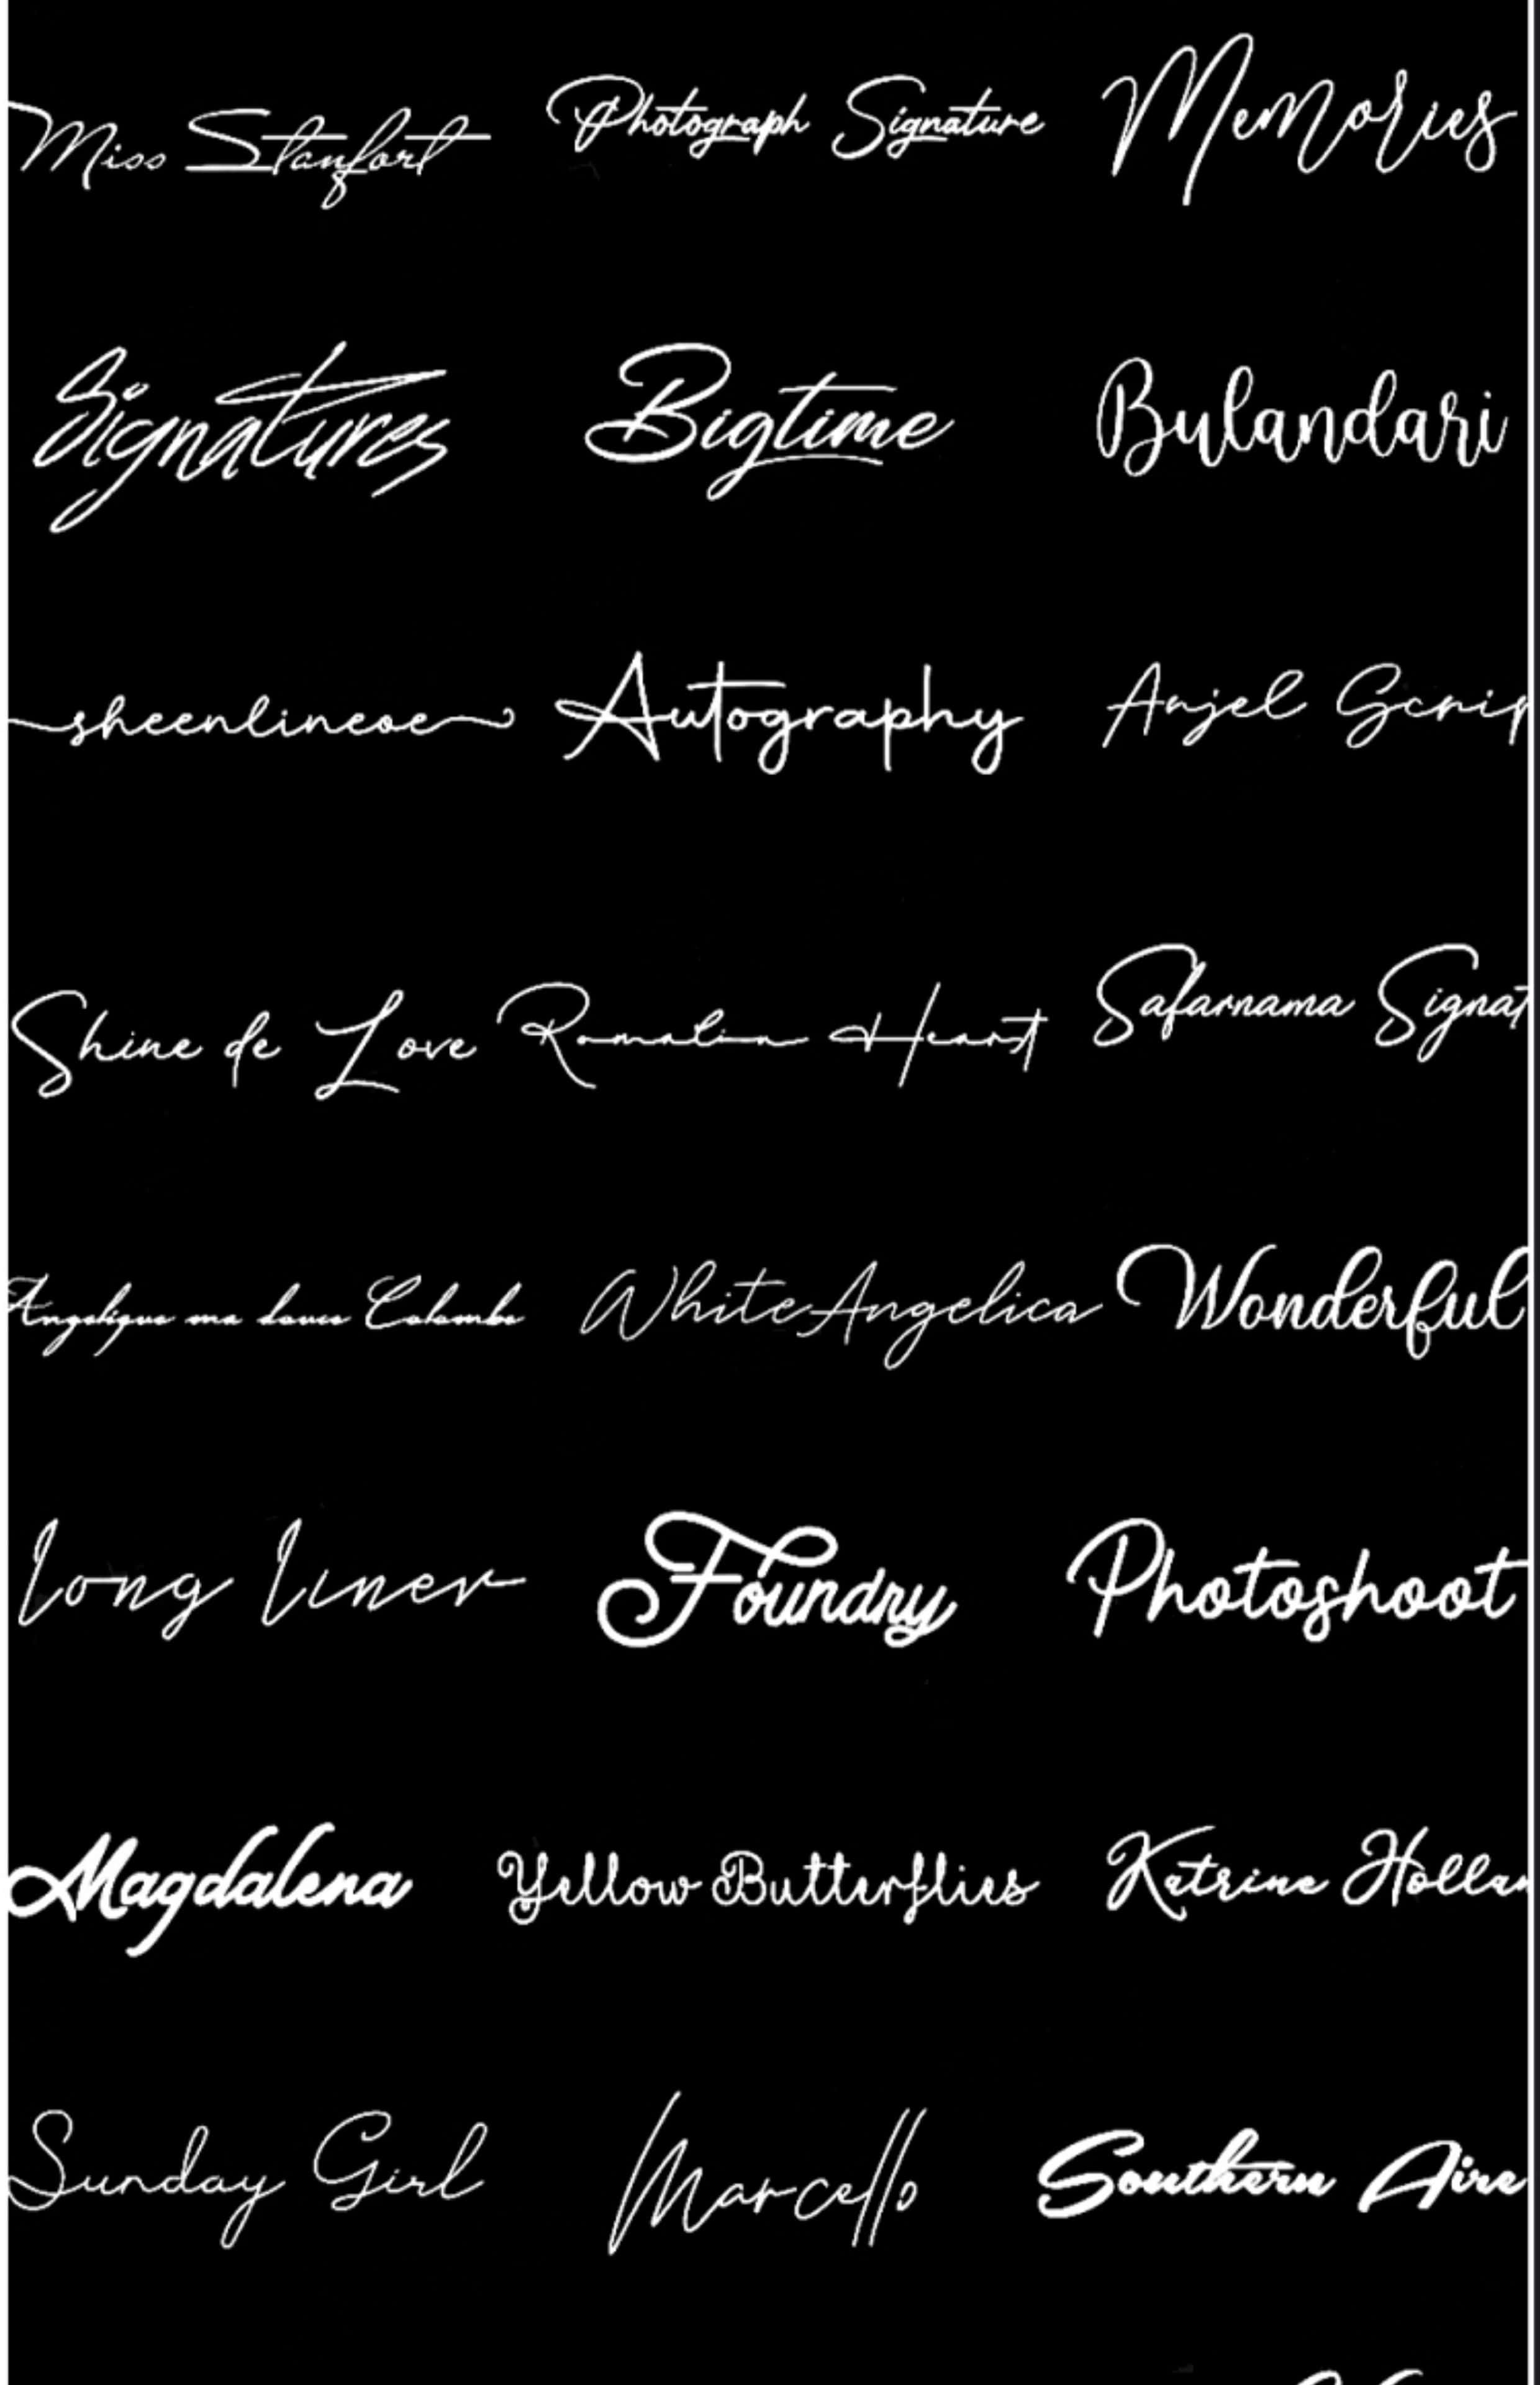 Miss Stanfort Photograph Signature Memories
Signatures Bigtime Bulandari
sheenlineoe Autography Anjel Scrip
Shine de Love Romalin Heart Safarnama Signat
Angelique ma douce Colombe White Angelica Wonderful
Long Liner Foundry Photoshoot
Magdalena Yellow Butterflies Katrine Hollan
Sunday Girl Marcello Southern Aire